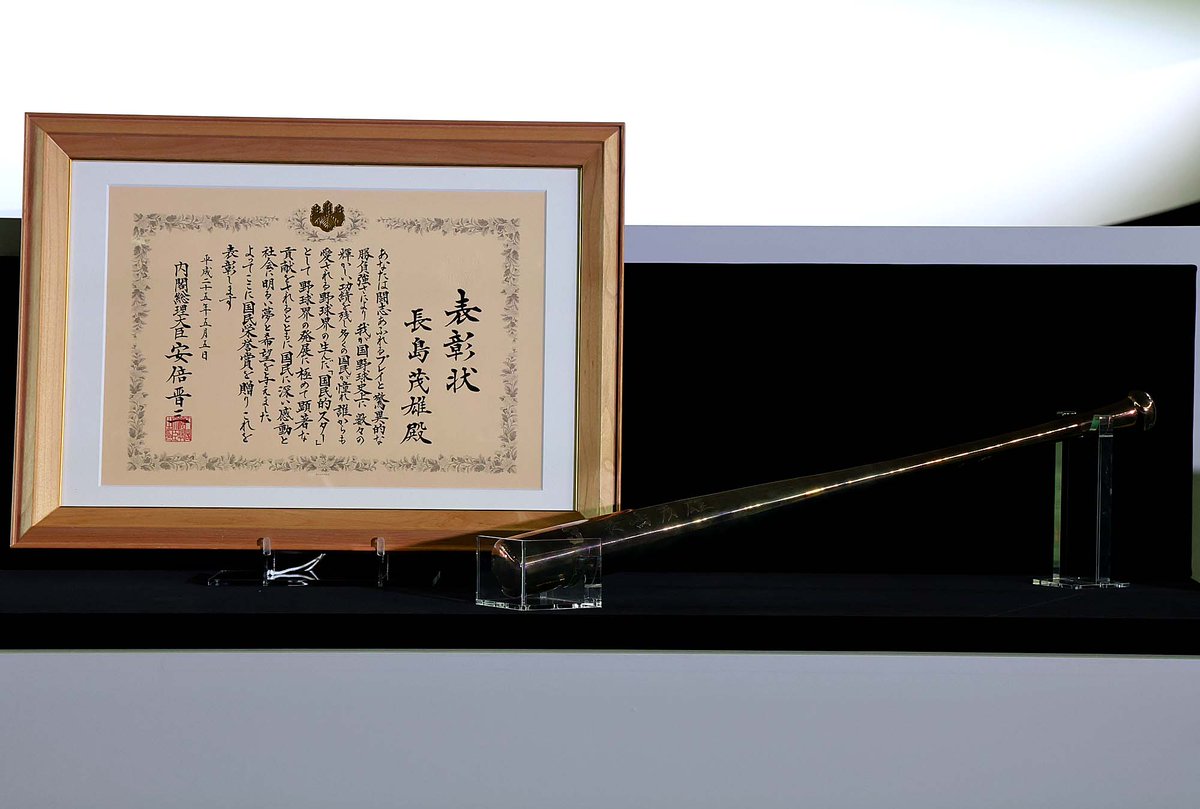 表彰状
長島茂雄殿
あなたは闘志あふれるプレイと驚異的な
勝負強さにより我が国野球史上に数々の
輝かしい功績を残し多くの国民が憧れ誰からも
愛される野球界の生んだ「国民的スター」
として野球界の発展に極めて顕著な
貢献をされるとともに国民に深い感動と
社会に明るい夢と希望を与えました
よってここに国民栄誉賞を贈りこれを
表彰します
平成二十五年五月五日
内閣総理大臣安倍晋三